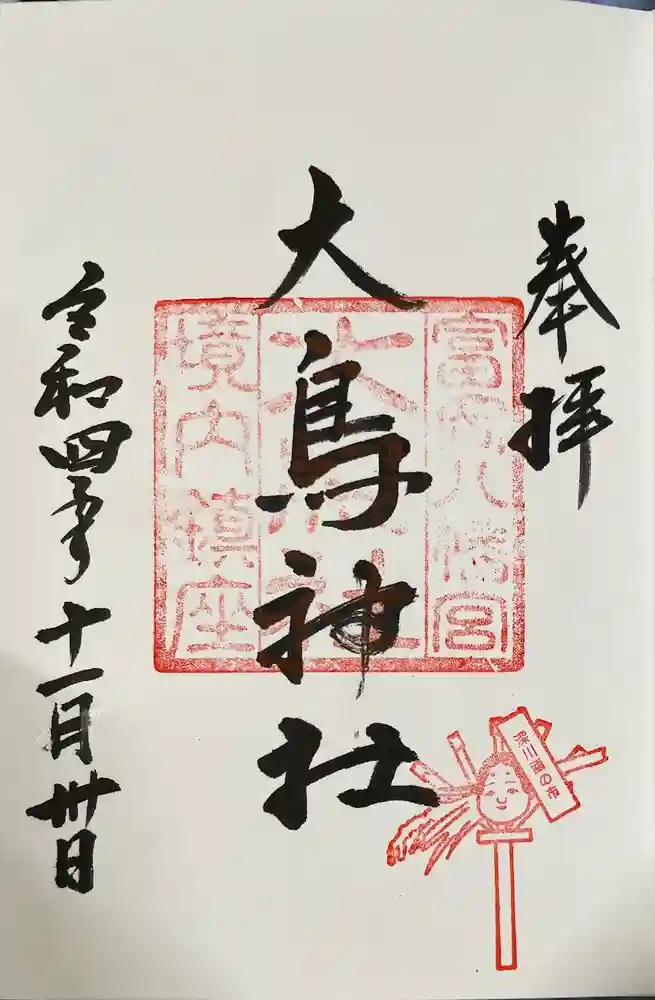 奉拝
大鳥神社
令和四年十一月卅日
富岡八幡宮
大鳥神社
境内鎮座